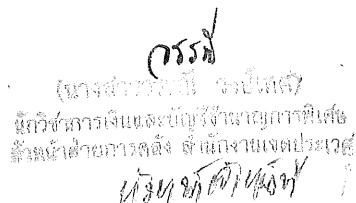 วรรณี
(นางสาววรรณี วงษ์เทศ)
นักวิชาการเงินและบัญชีชำนาญการพิเศษ
หัวหน้าฝ่ายการคลัง สำนักงานเขตประเวศ